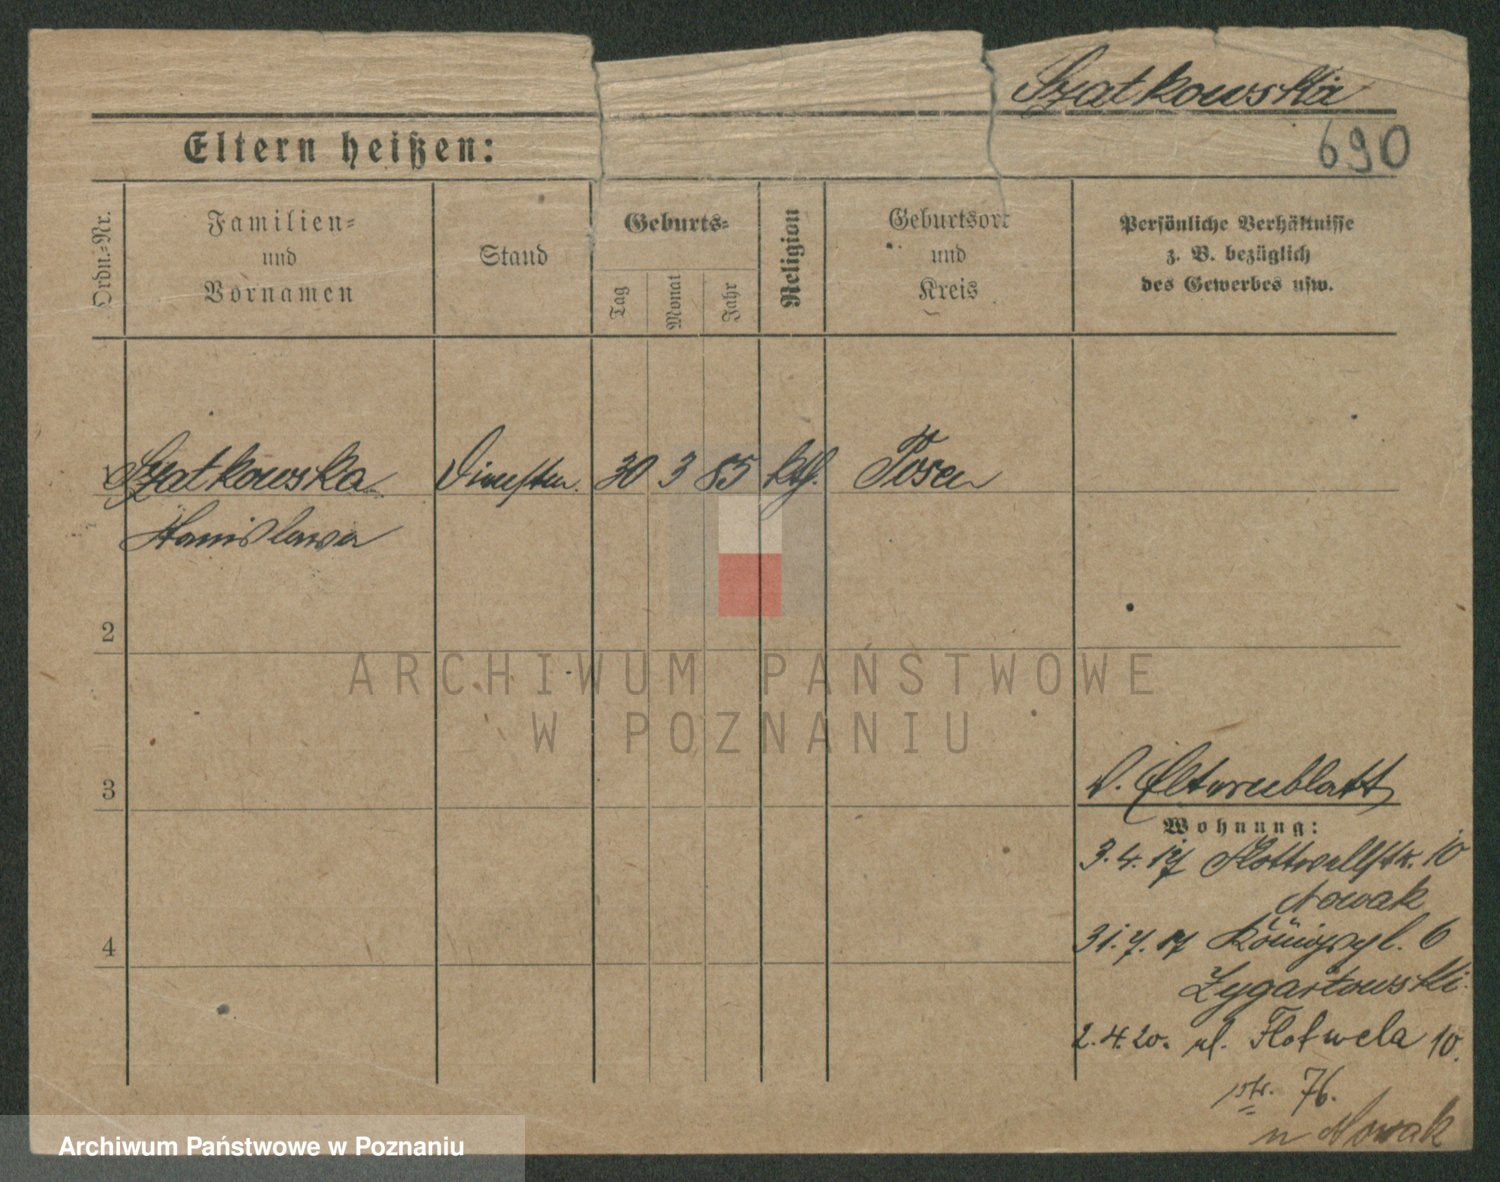 Szatkowska
690
Eltern heißen:
Ordn.-Nr.
Familien-
und
Vornamen
Stand
Geburts-
Tag
Monat
Jahr
Religion
Geburtsort
und
Kreis
Persönliche Verhältnisse
z. B. bezüglich
des Gewerbes usw.
Szatkowska 30 3 85 kth. Posen
Stanislawa
2
3
Wohnung:
3.4.17 Flottwellstr. 10
Nowak
4
31.7.17 Königspl. 6
Zygartowski
2.4.20. ul. Flotwela 10.
str. 76.
u Nowak
ARCHIWUM PAŃSTWOWE
W POZNANIU
Archiwum Państwowe w Poznaniu